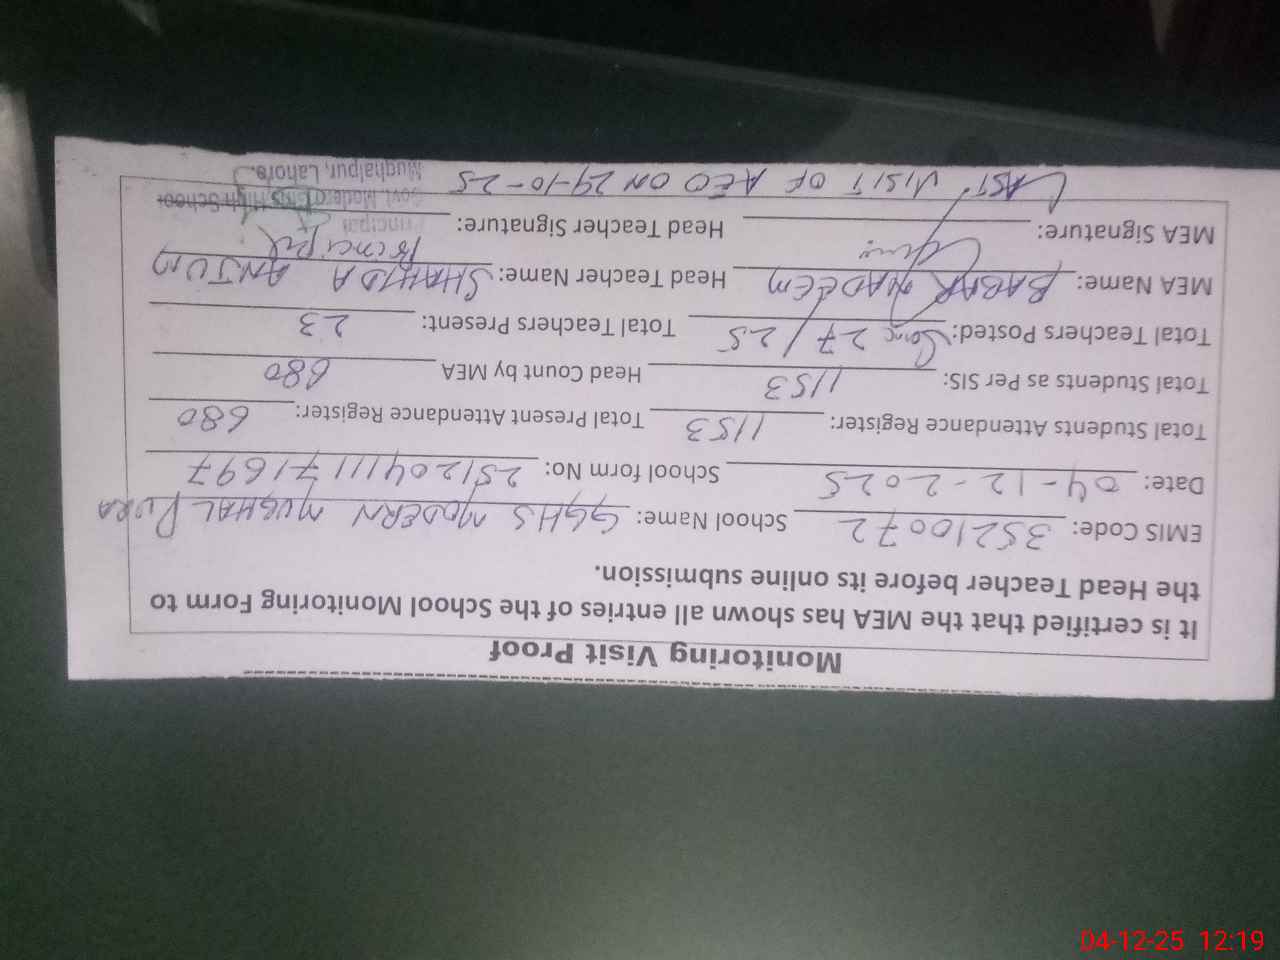 Monitoring Visit Proof
It is certified that the MEA has shown all entries of the School Monitoring Form to
the Head Teacher before its online submission.
EMIS Code: 35210072 School Name: GGHS MODERN MUGHAL PURA
Date: 04-12-2025 School form No: 251204111171697
Total Students Attendance Register: 1153 Total Present Attendant Register: 680
Total Students as Per SIS: 1153 Head Count by MEA 680
Total Teachers Posted: Sanc 27/25 Total Teachers Present: 23
MEA Name: BABAR NADEEM Head Teacher Name: SHAHIDA ANJUM
MEA Signature: Head Teacher Signature: Principal
Principal
Govt. Modern Girls High School
Mughalpur, Lahore.
LAST VISIT OF AEO ON 29-10-25
04-12-25 12:19